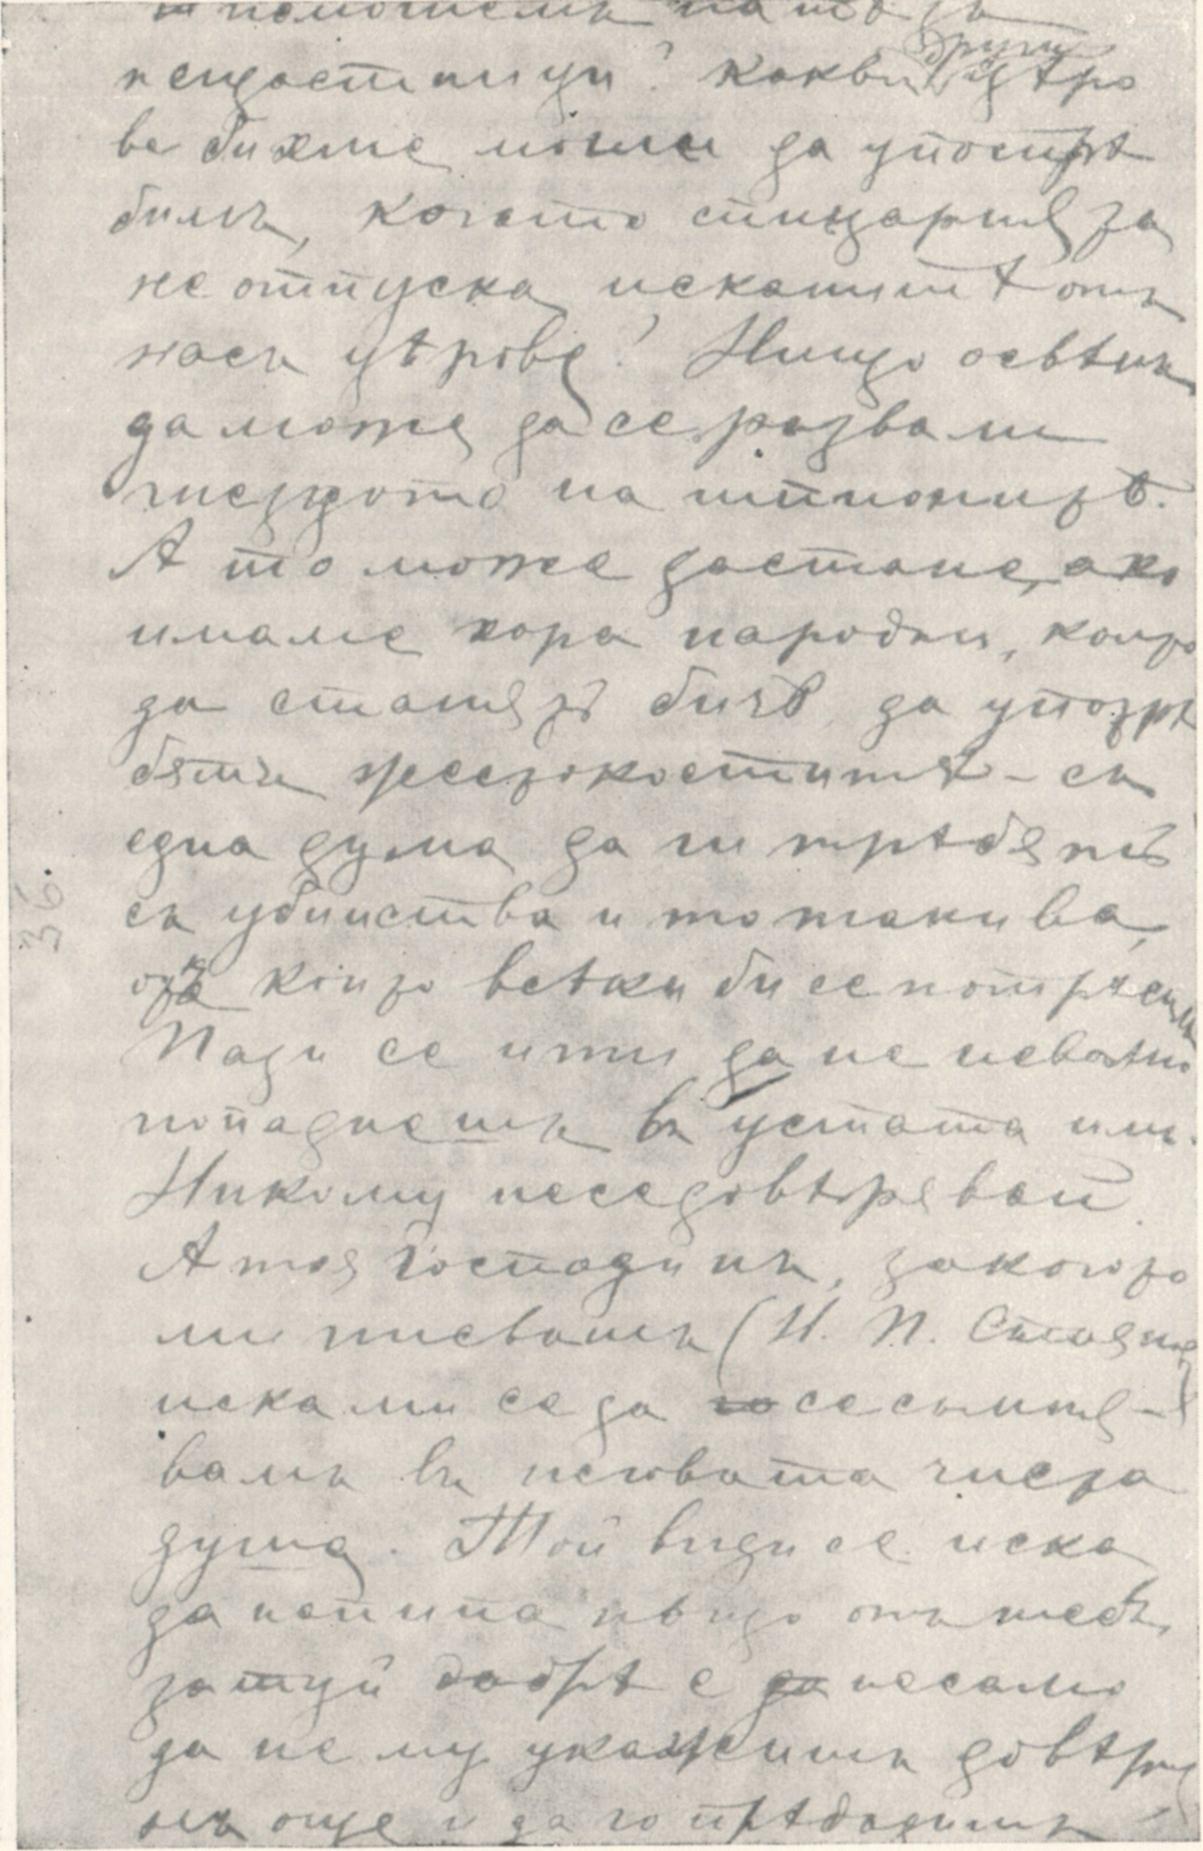 нещастници? Какви други цѣро
ве бихме могли да употрѣ
бимъ, когато спицарията
не отпуска исканитѣ отъ
насъ цѣрове? Нищо освѣнъ
да може да се развали
гнездото на шпионитѣ.
А то може дастане, ако
имаме хора народни, които
да станатъ бичъ, да употрѣ
бятъ жестокоститѣ – съ
една дума да ги трѣбятъ
съ убийства и то такива,
отъ които всѣки би се потресилъ
Пази се и ти да не неволно
попаднешъ въ устата имъ.
Никому неседовѣрявай
А тоя господинъ, закогото
ми пишешъ (Н. П. Стояновъ)
иска ми се да го се съмня-
вамъ въ неговата чиста
душа. Той види се иска
да испита нѣщо отъ тебъ,
затуй добрѣ е да несамо
да не му укажешъ довѣрие
нъ още и да го прѣдадешъ